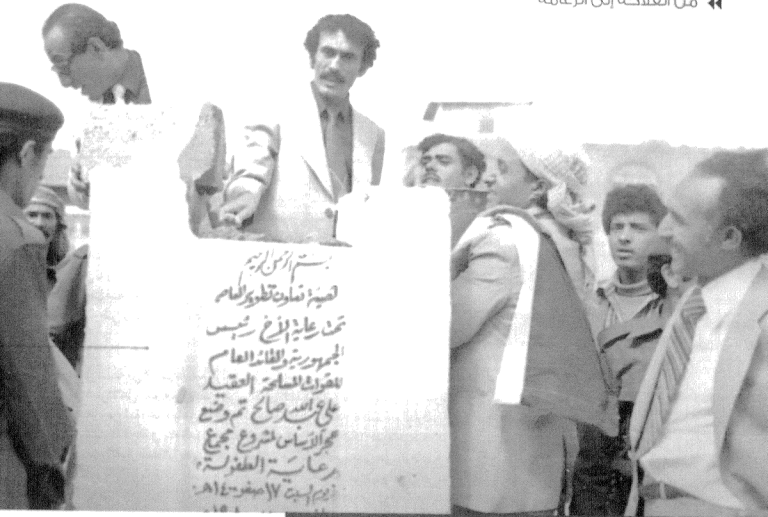 من الفلاحة إلى الزعامة
بسم الله الرحمن الرحيم
هيئة تعاون تطوير العام
تحت رعاية الأخ رئيس
الجمهورية والقائد العام
للقوات المسلحة العقيد
علي عبدالله صالح تم وضع
حجر الأساس لمشروع مجمع
رعاية الطفولة
يوم السبت ١٧ صفر ١٤٠٠هـ